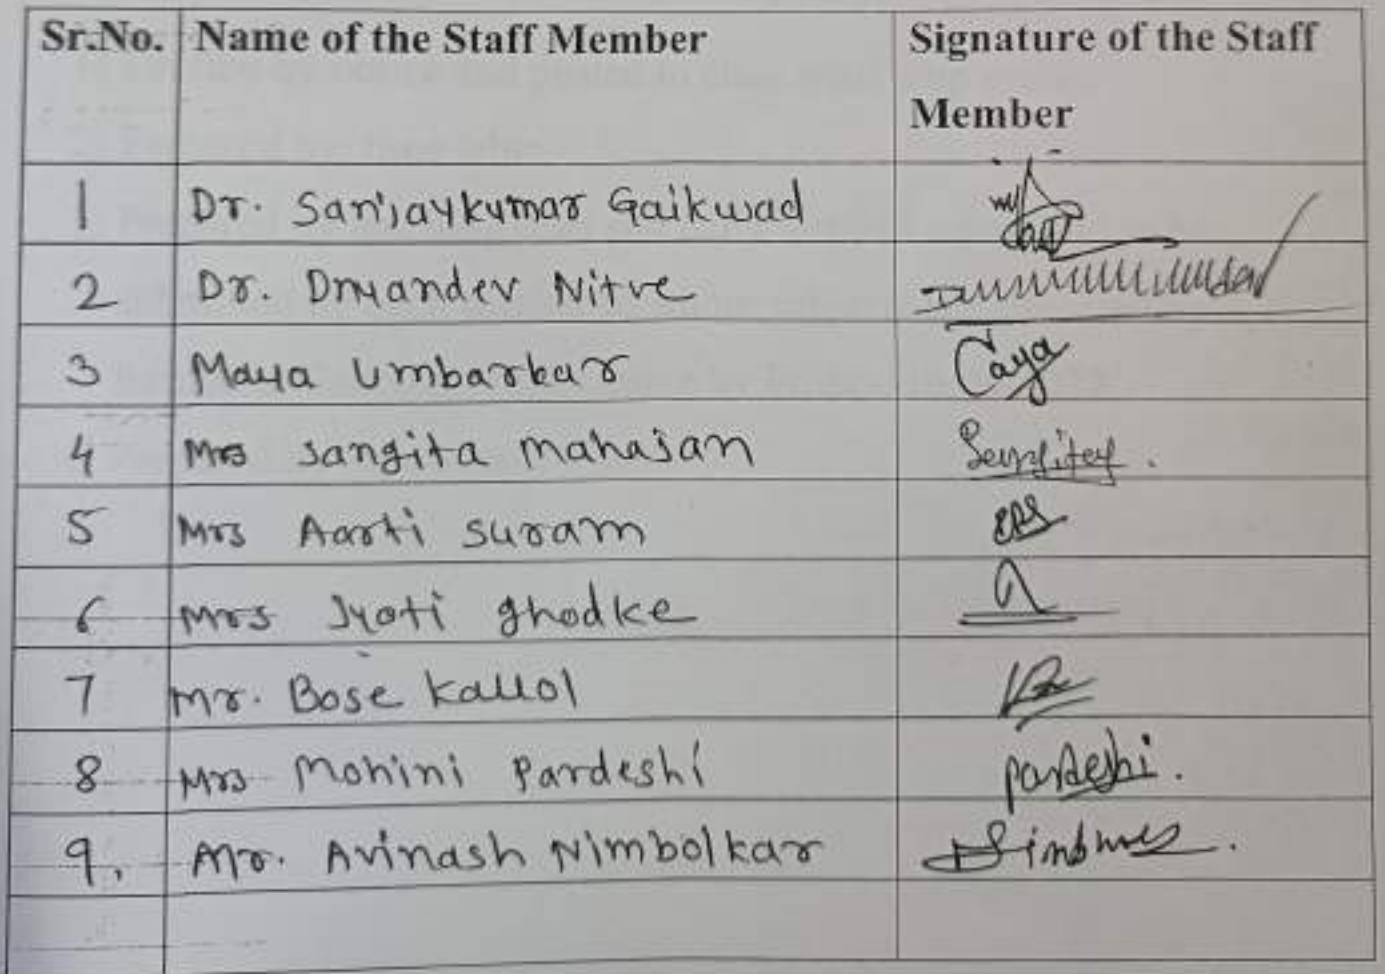 Sr.No. Name of the Staff Member Signature of the Staff
Member
1 Dr. Sanjaykumar Gaikwad
2 Dr. Dnyandev Nitve
3 Maya Umbarkar
4 Mrs Sangita Mahajan
5 Mrs Aarti Suram
6 Mrs Jyoti Ghodke
7 Mr. Bose Kallol
8 Mrs Mohini Pardeshi Pardeshi.
9. Mr. Avinash Nimbolkar